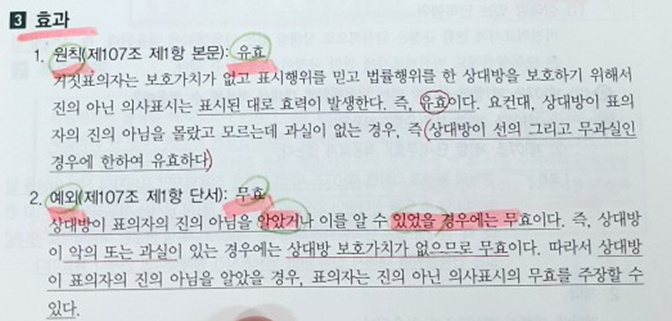 3 효과
1. 원칙(제107조 제1항 본문): 유효
거짓표의자는 보호가치가 없고 표시행위를 믿고 법률행위를 한 상대방을 보호하기 위해서
진의 아닌 의사표시는 표시된 대로 효력이 발생한다. 즉, 유효이다. 요컨대, 상대방이 표의
자의 진의 아님을 몰랐고 모르는데 과실이 없는 경우, 즉 상대방이 선의 그리고 무과실인
경우에 한하여 유효하다.
2. 예외(제107조 제1항 단서): 무효
상대방이 표의자의 진의 아님을 알았거나 이를 알 수 있었을 경우에는 무효이다. 즉, 상대방
이 악의 또는 과실이 있는 경우에는 상대방 보호가치가 없으므로 무효이다. 따라서 상대방
이 표의자의 진의 아님을 알았을 경우, 표의자는 진의 아닌 의사표시의 무효를 주장할 수
있다.